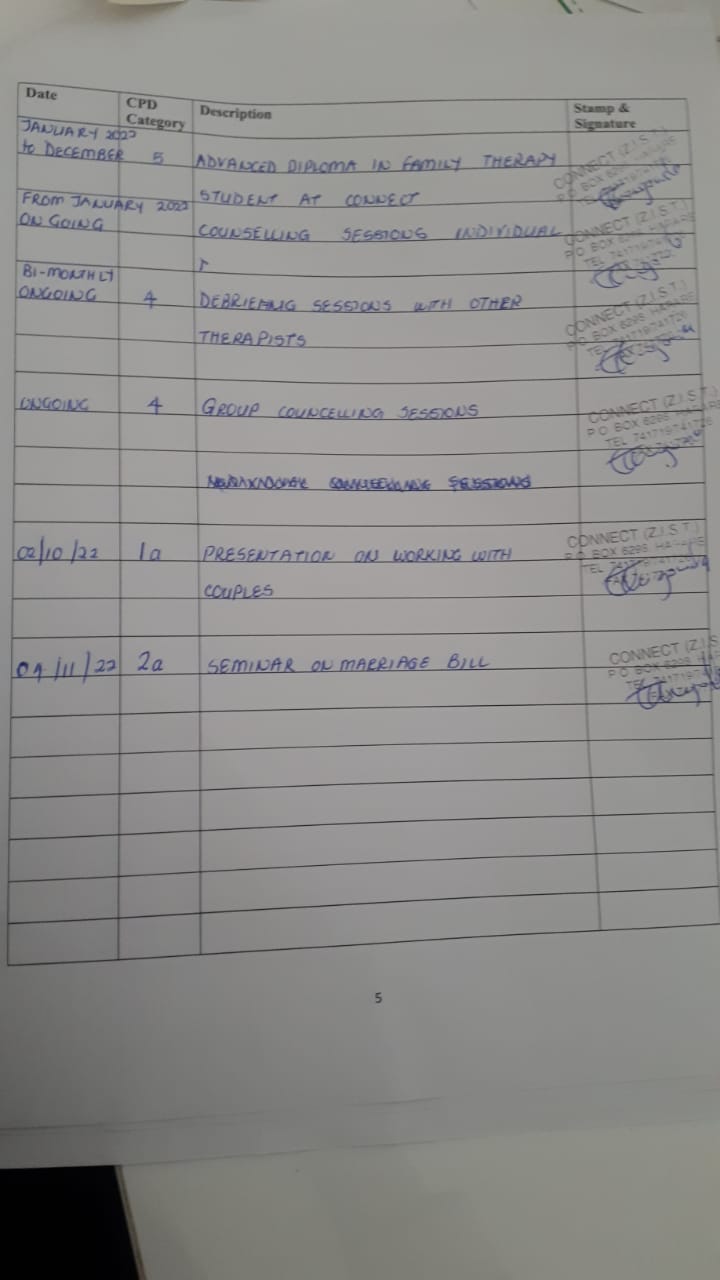 Date CPD Category Description Stamp & Signature
JANUARY 2022
to DECEMBER 5 ADVANCED DIPLOMA IN FAMILY THERAPY
CONNECT (Z.I.S.T.)
P O BOX 6298 HARARE
FROM JANUARY 2022 STUDENT AT CONNECT
ON GOING COUNSELLING SESSIONS INDIVIDUAL
CONNECT (Z.I.S.T.)
P O BOX 6298 HARARE
TEL 741719/741726
BI-MONTHLY
ONGOING 4 DEBRIEFING SESSIONS WITH OTHER
THERAPISTS
CONNECT (Z.I.S.T.)
P O BOX 6298 HARARE
TEL 741719/741726
ONGOING 4 GROUP COUNCELLING SESSIONS
CONNECT (Z.I.S.T.)
P O BOX 6298 HARARE
TEL 741719/741726
SESSIONS
02/10/22 1a PRESENTATION ON WORKING WITH
COUPLES
CONNECT (Z.I.S.T.)
P O BOX 6298 HARARE
TEL 741719/741726
/11/22 2a SEMINAR ON MARRIAGE BILL
CONNECT (Z.I.S
P O BOX 6298 HAR
TEL 741719/74
5